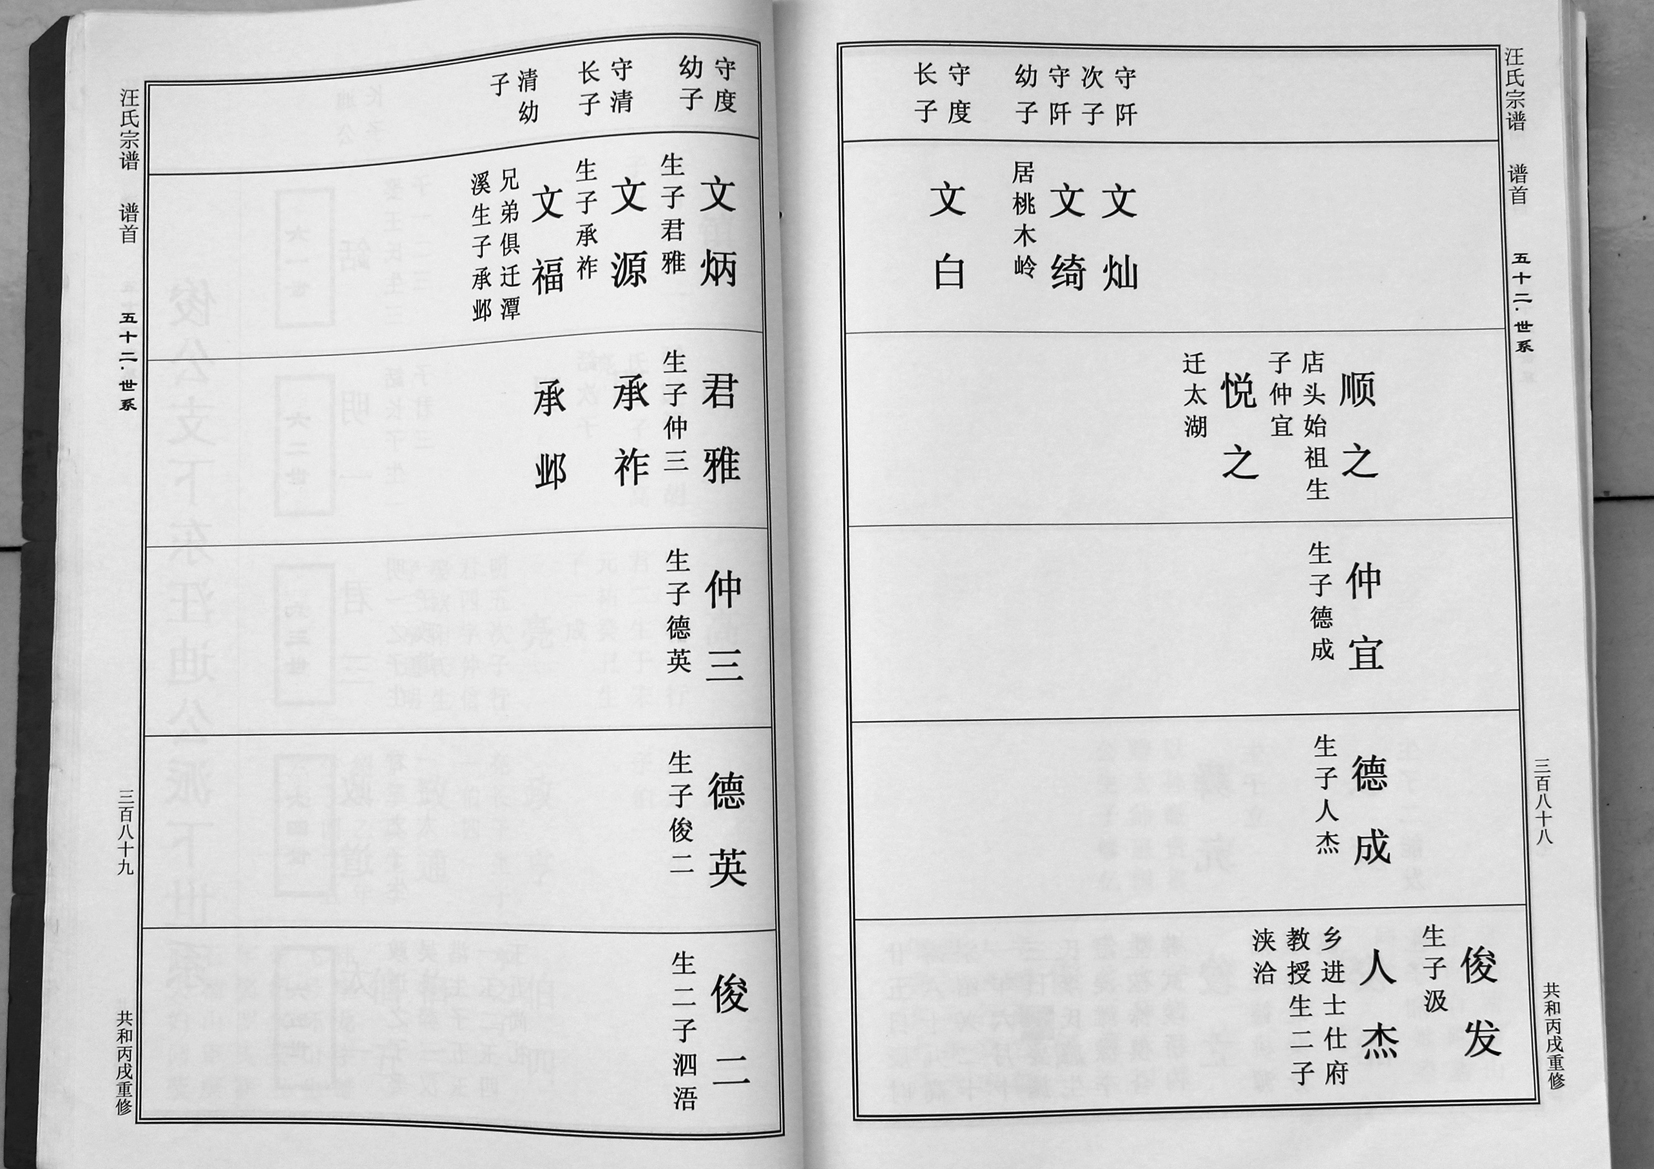 汪氏宗谱 谱首 五十二·世系 三百八十八 共和丙戌重修
守阡
次子
守阡
幼子
守度
长子
文灿
文绮
居桃木岭
文白
顺之
店头始祖生
子仲宜
悦之
迁太湖
仲宜
生子德成
德成
生子人杰
俊发
生子汲
人杰
乡进士仕府
教授生二子
浃洽
守度
幼子
守清
长子
清幼
子
文炳
生子君雅
文源
生子承祚
文福
兄弟俱迁潭
溪生子承邺
君雅
生子仲三
承祚
承邺
仲三
生子德英
德英
生子俊二
俊二
生二子泗浯
汪氏宗谱 谱首 五十二·世系 三百八十九 共和丙戌重修